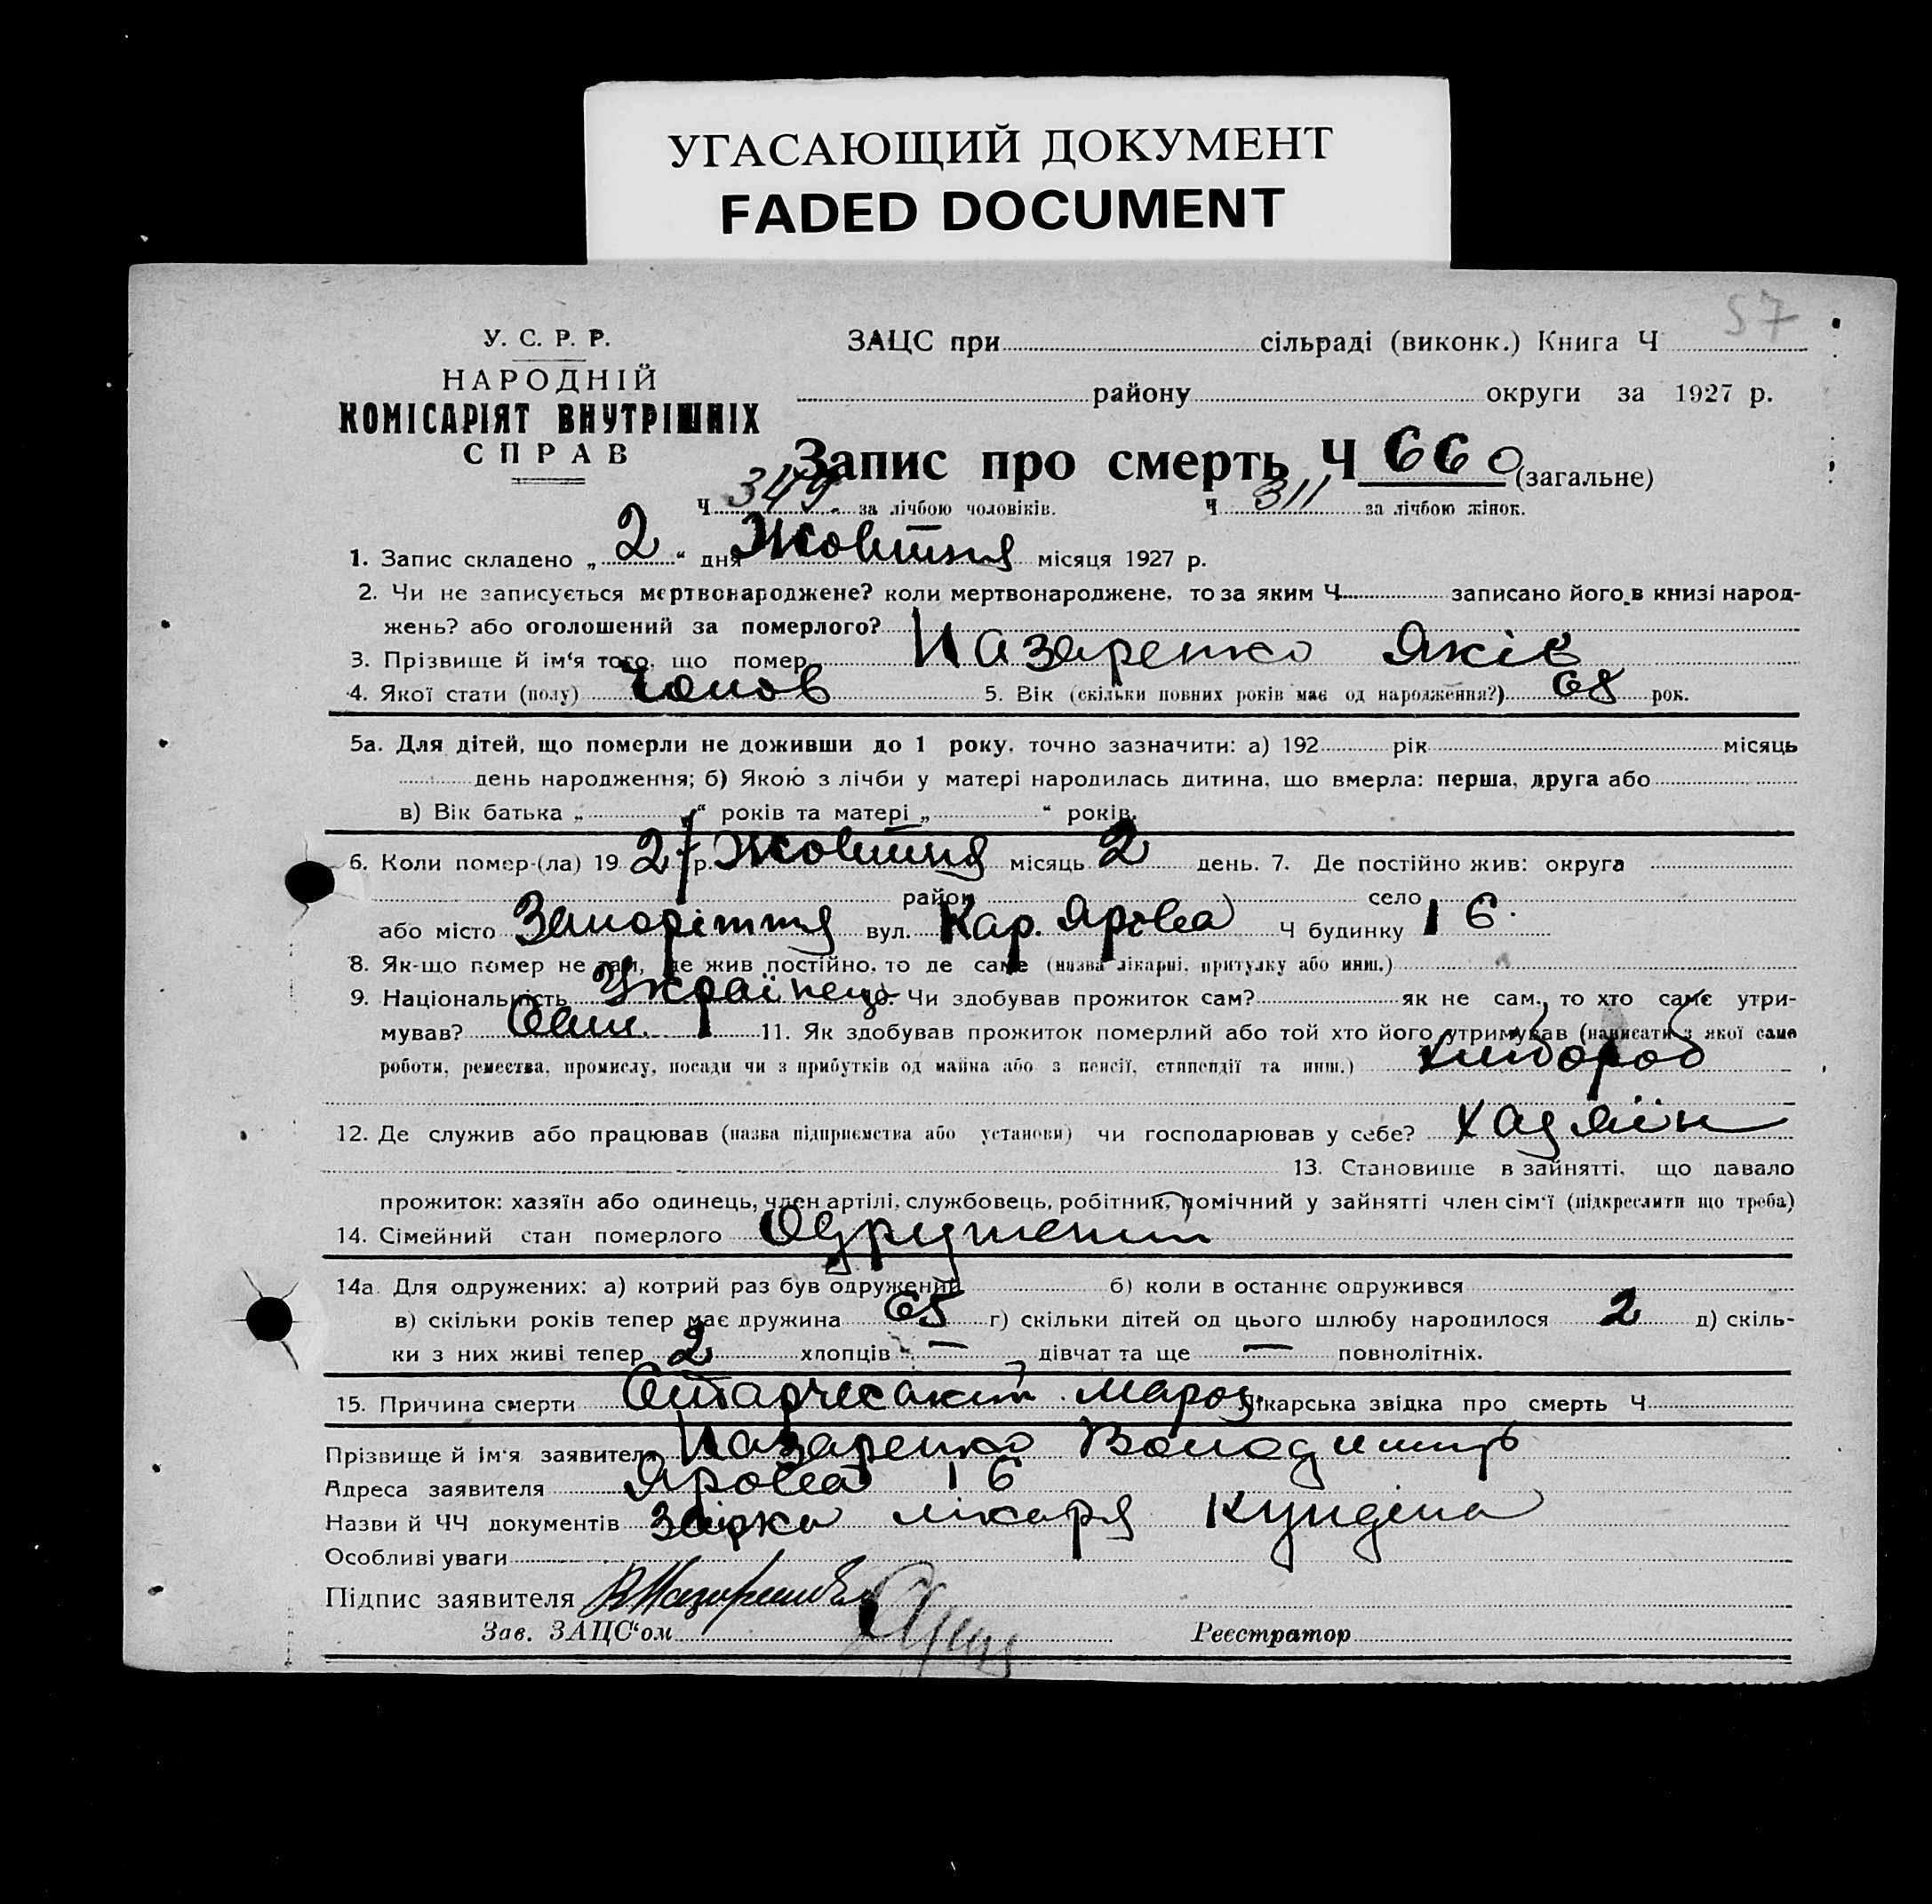 УГАСАЮЩИЙ ДОКУМЕНТ
FADED DOCUMENT
57
У. С. Р. Р.
НАРОДНІЙ
КОМІСАРІЯТ ВНУТРІШНІХ
СПРАВ
ЗАЦС при сільраді (виконк.) Книга Ч
району округи за 1927 р.
Запис про смерть Ч 660 (загальне)
Ч 349 за лічбою чоловіків. Ч 311 за лічбою жінок.
1. Запис складено „2“ дня Жовтня місяця 1927 р.
2. Чи не записується мертвонароджене? коли мертвонароджене, то за яким Ч. записано його в книзі народ-
жень? або оголошений за померлого?
3. Прізвище й ім'я того, що помер Назаренко Яків
4. Якої стати (полу) Чолов 5. Вік (скільки повних років має од народження?) 68 рок.
5а. Для дітей, що померли не доживши до 1 року, точно зазначити: а) 192 рік місяць
день народження; б) Якою з лічби у матері народилась дитина, що вмерла: перша, друга або
в) Вік батька „ “ років та матері „ “ років.
6. Коли помер-(ла) 1927 р. Жовтня місяць 2 день. 7. Де постійно жив: округа
район село
або місто Запоріжжя вул. Кар. Ярова Ч будинку 16
8. Як-що помер не там, де жив постійно, то де саме (назва лікарні, притулку або инш.)
9. Національність Українець 10. Чи здобував прожиток сам? як не сам, то хто саме утри-
мував? Сам. 11. Як здобував прожиток померлий або той хто його утримував (написати з якої саме
роботи, ремества, промислу, посади чи з прибутків од майна або з пенсії, стипендії та инш.) хлібороб
12. Де служив або працював (назва підприємства або установи) чи господарював у себе? хазяїн
13. Становище в зайнятті, що давало
прожиток: хазяїн або одинець, член артілі, службовець, робітник, помічний у зайнятті член сім'ї (підкреслити що треба)
14. Сімейний стан померлого Одружений
14а. Для одружених: а) котрий раз був одружений б) коли в останнє одружився
в) скільки років тепер має дружина 65 г) скільки дітей од цього шлюбу народилося 2 д) скіль-
ки з них живі тепер 2 хлопців — дівчат та ще — повнолітніх.
15. Причина смерти Лікарська звідка про смерть Ч
Прізвище й ім'я заявителя Назаренко Володимир
Адреса заявителя Ярова 16
Назви й ЧЧ документів лікаря
Особливі уваги
Підпис заявителя
Зав. ЗАЦС'ом Реєстратор